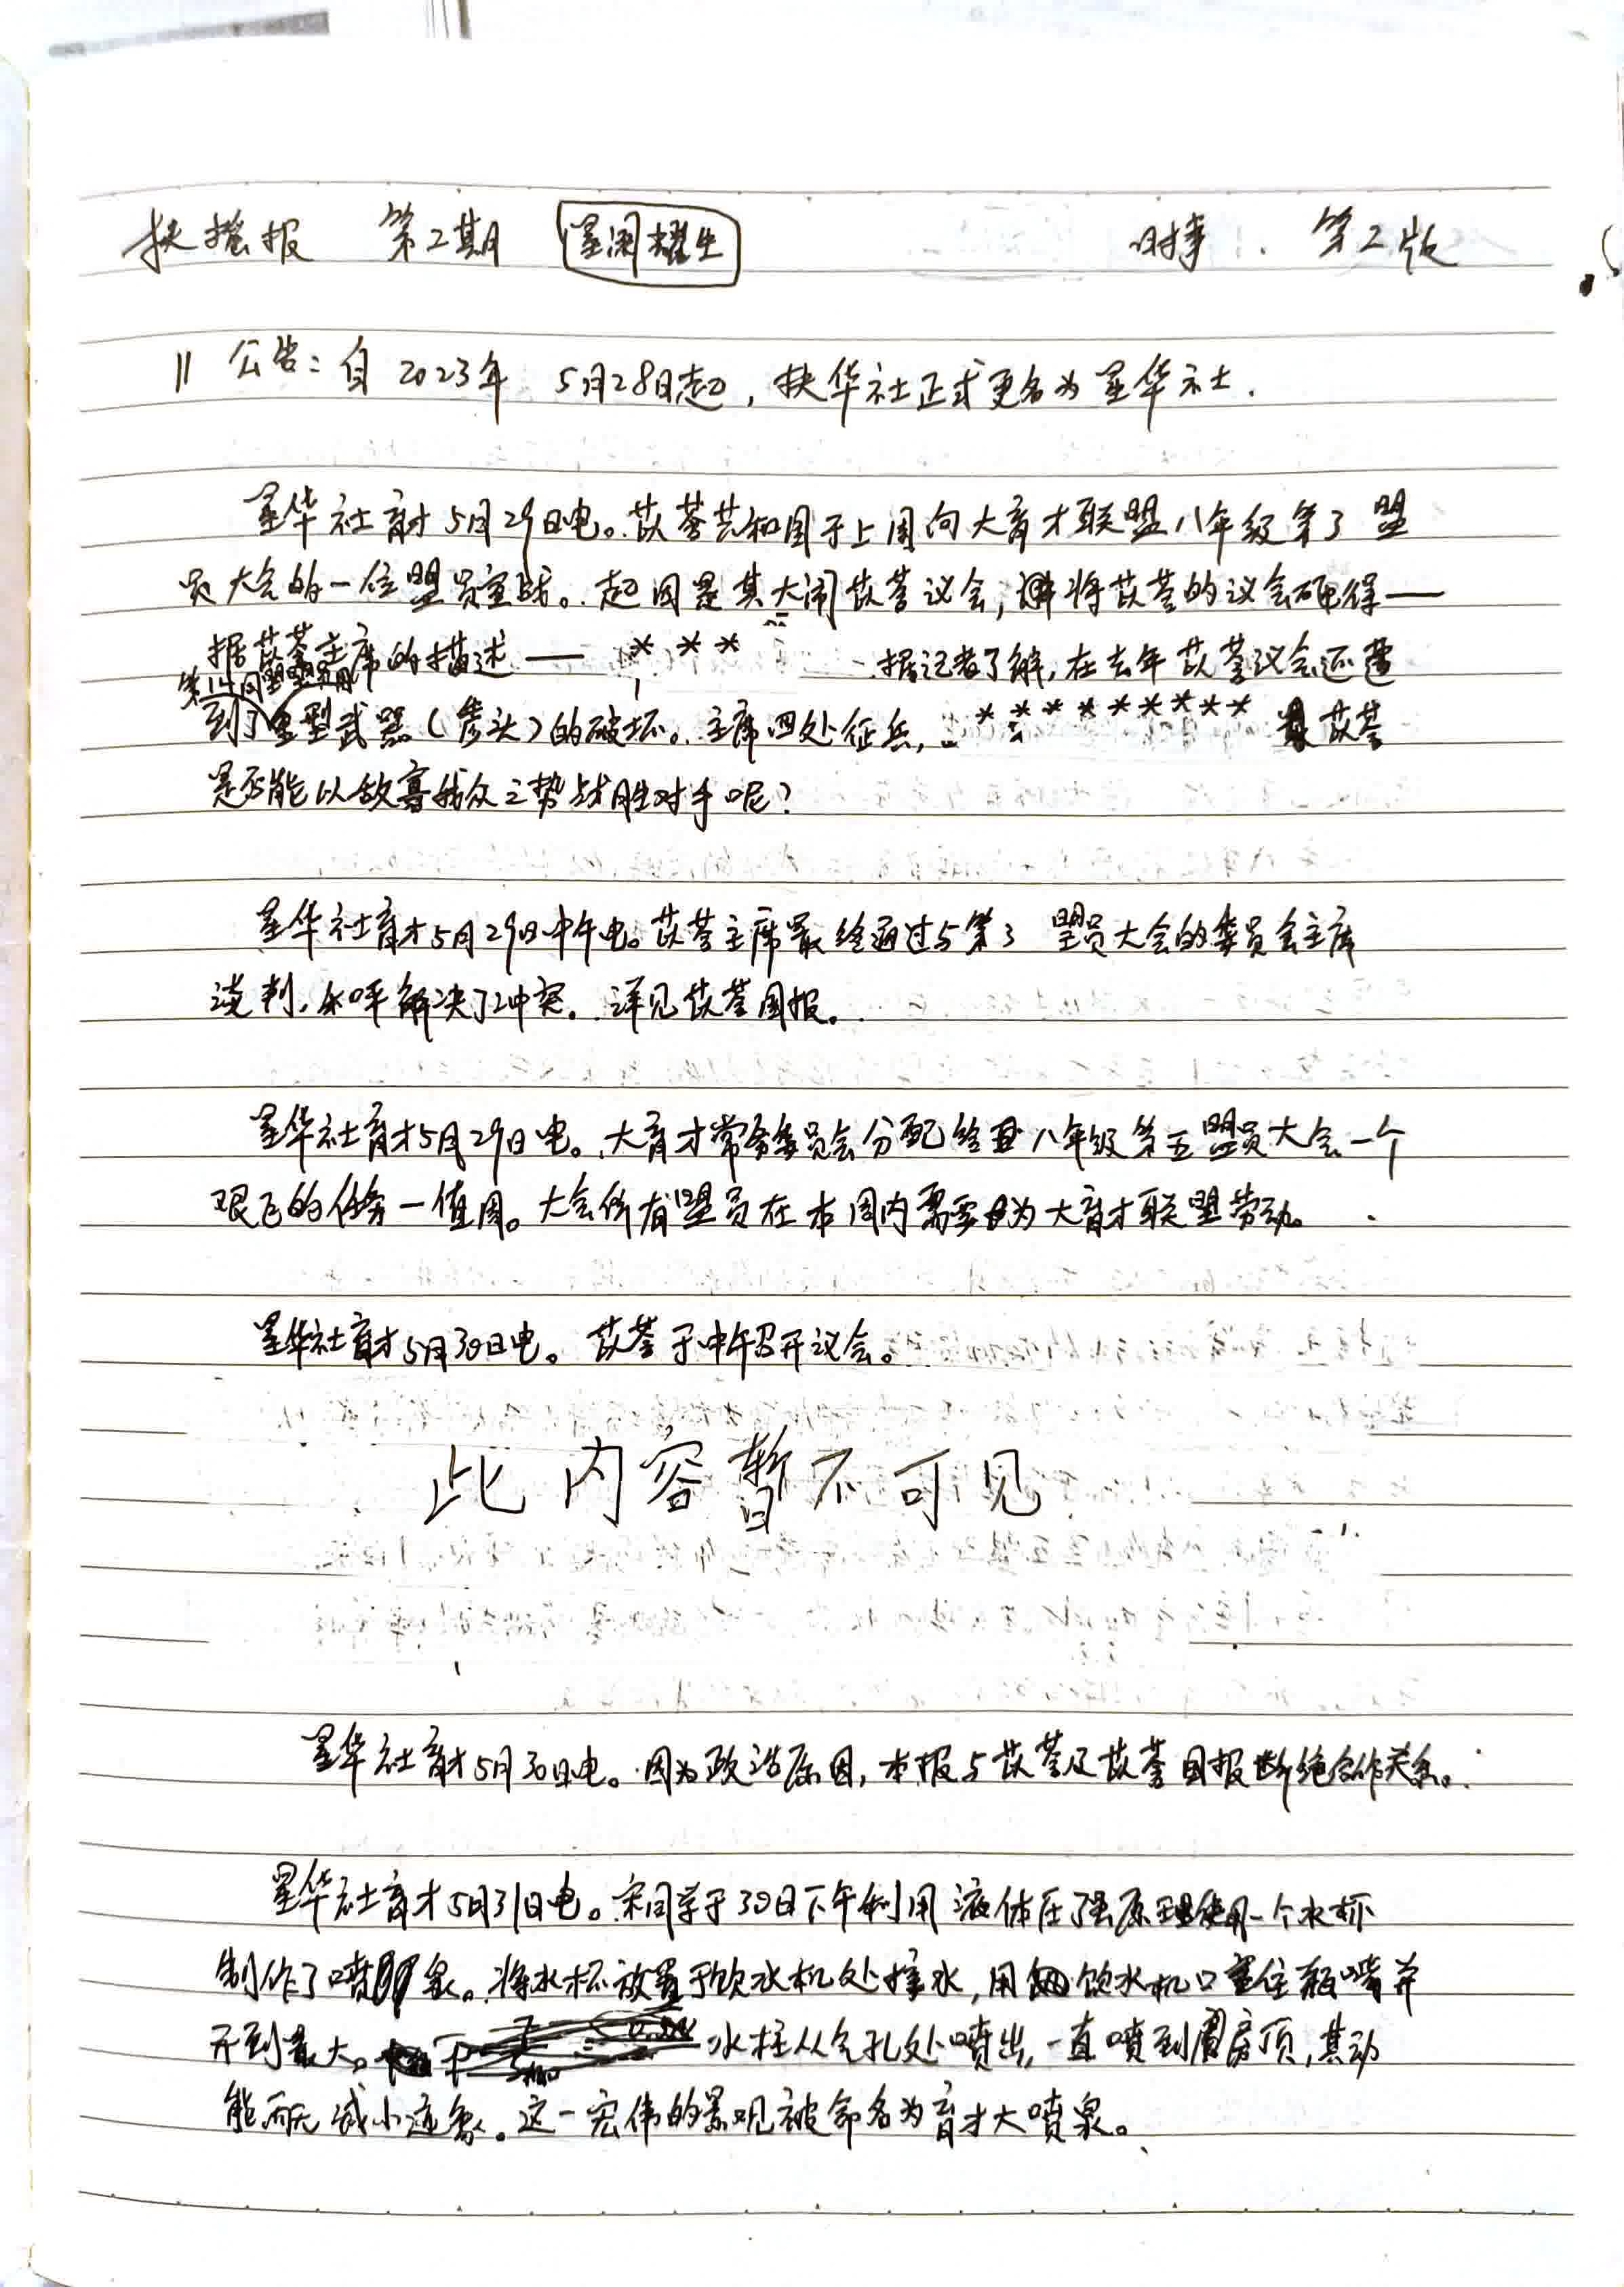 扶摇报 第2期 星闻耀生 时事 第2版
公告：自2023年 5月28日起，扶华社正式更名为星华社.
星华社育才5月29日电。苡荟共和国于上周向大育才联盟八年级第3 盟
员大会的一位盟员宣战。起因是其大闹苡荟议会，将苡荟的议会砸得——
据苡荟主席的描述—— * * * 据记者了解，在去年苡荟议会还遭
到了重型武器（凳头）的破坏。主席四处征兵， * * * * * * * * * 苡荟
是否能以敌寡我众之势战胜对手呢？
星华社育才5月29日中午电。苡荟主席最终通过与第3 盟员大会的委员会主席
谈判，和平解决了冲突。详见苡荟周报。
星华社育才5月29日电。大育才常务委员会分配给 八年级第五盟员大会一个
艰巨的任务—值周。大会所有盟员在本周内需要为大育才联盟劳动。
星华社育才5月30日电。苡荟于中午召开议会。
此内容暂不可见
星华社育才5月30日电。因为政治原因，本报与苡荟及苡荟周报断绝合作关系。
星华社育才5月31日电。宋同学于30日下午利用液体压强原理使用一个水杯
制作了喷泉。将水杯放置于饮水机处接水，用饮水机口塞住瓶嘴并
开到最大。水柱从气孔处喷出，一直喷到房顶，其动
能而无减小迹象。这一宏伟的景观被命名为育才大喷泉。